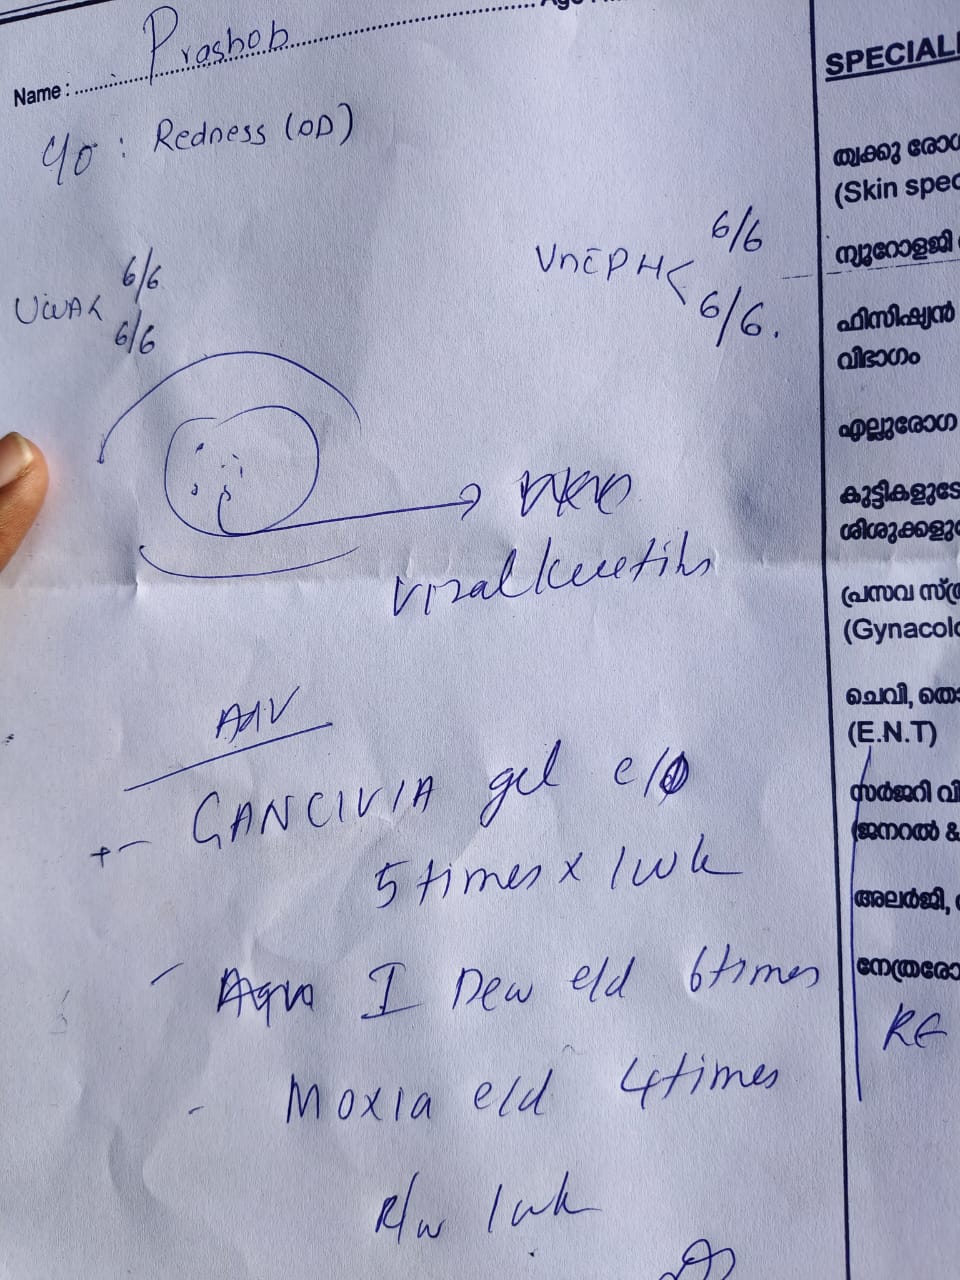 Name : Prashob
c/o : Redness (OD)
UCVA < 6/6
6/6
Vn c PH < 6/6
6/6.
Viral keratitis
Adv
+- GANCIVIA gel e/o
5 times x 1 wk
- Aqua I Dew e/d 6 times
- Moxia e/d 4 times
R/w 1 wk
SPECIAL
ത്വക്കു
(Skin spec
ന്യൂറോളജി
ഫിസിഷ്യൻ
വിഭാഗം
എല്ലുരോഗ
കുട്ടികളുടേ
ശിശുക്കളു
(പ്രസവ
(Gynacolo
ചെവി,
(E.N.T)
സർജറി വി
(ജനറൽ &
അലർജി,
നേത്രരോ
RE